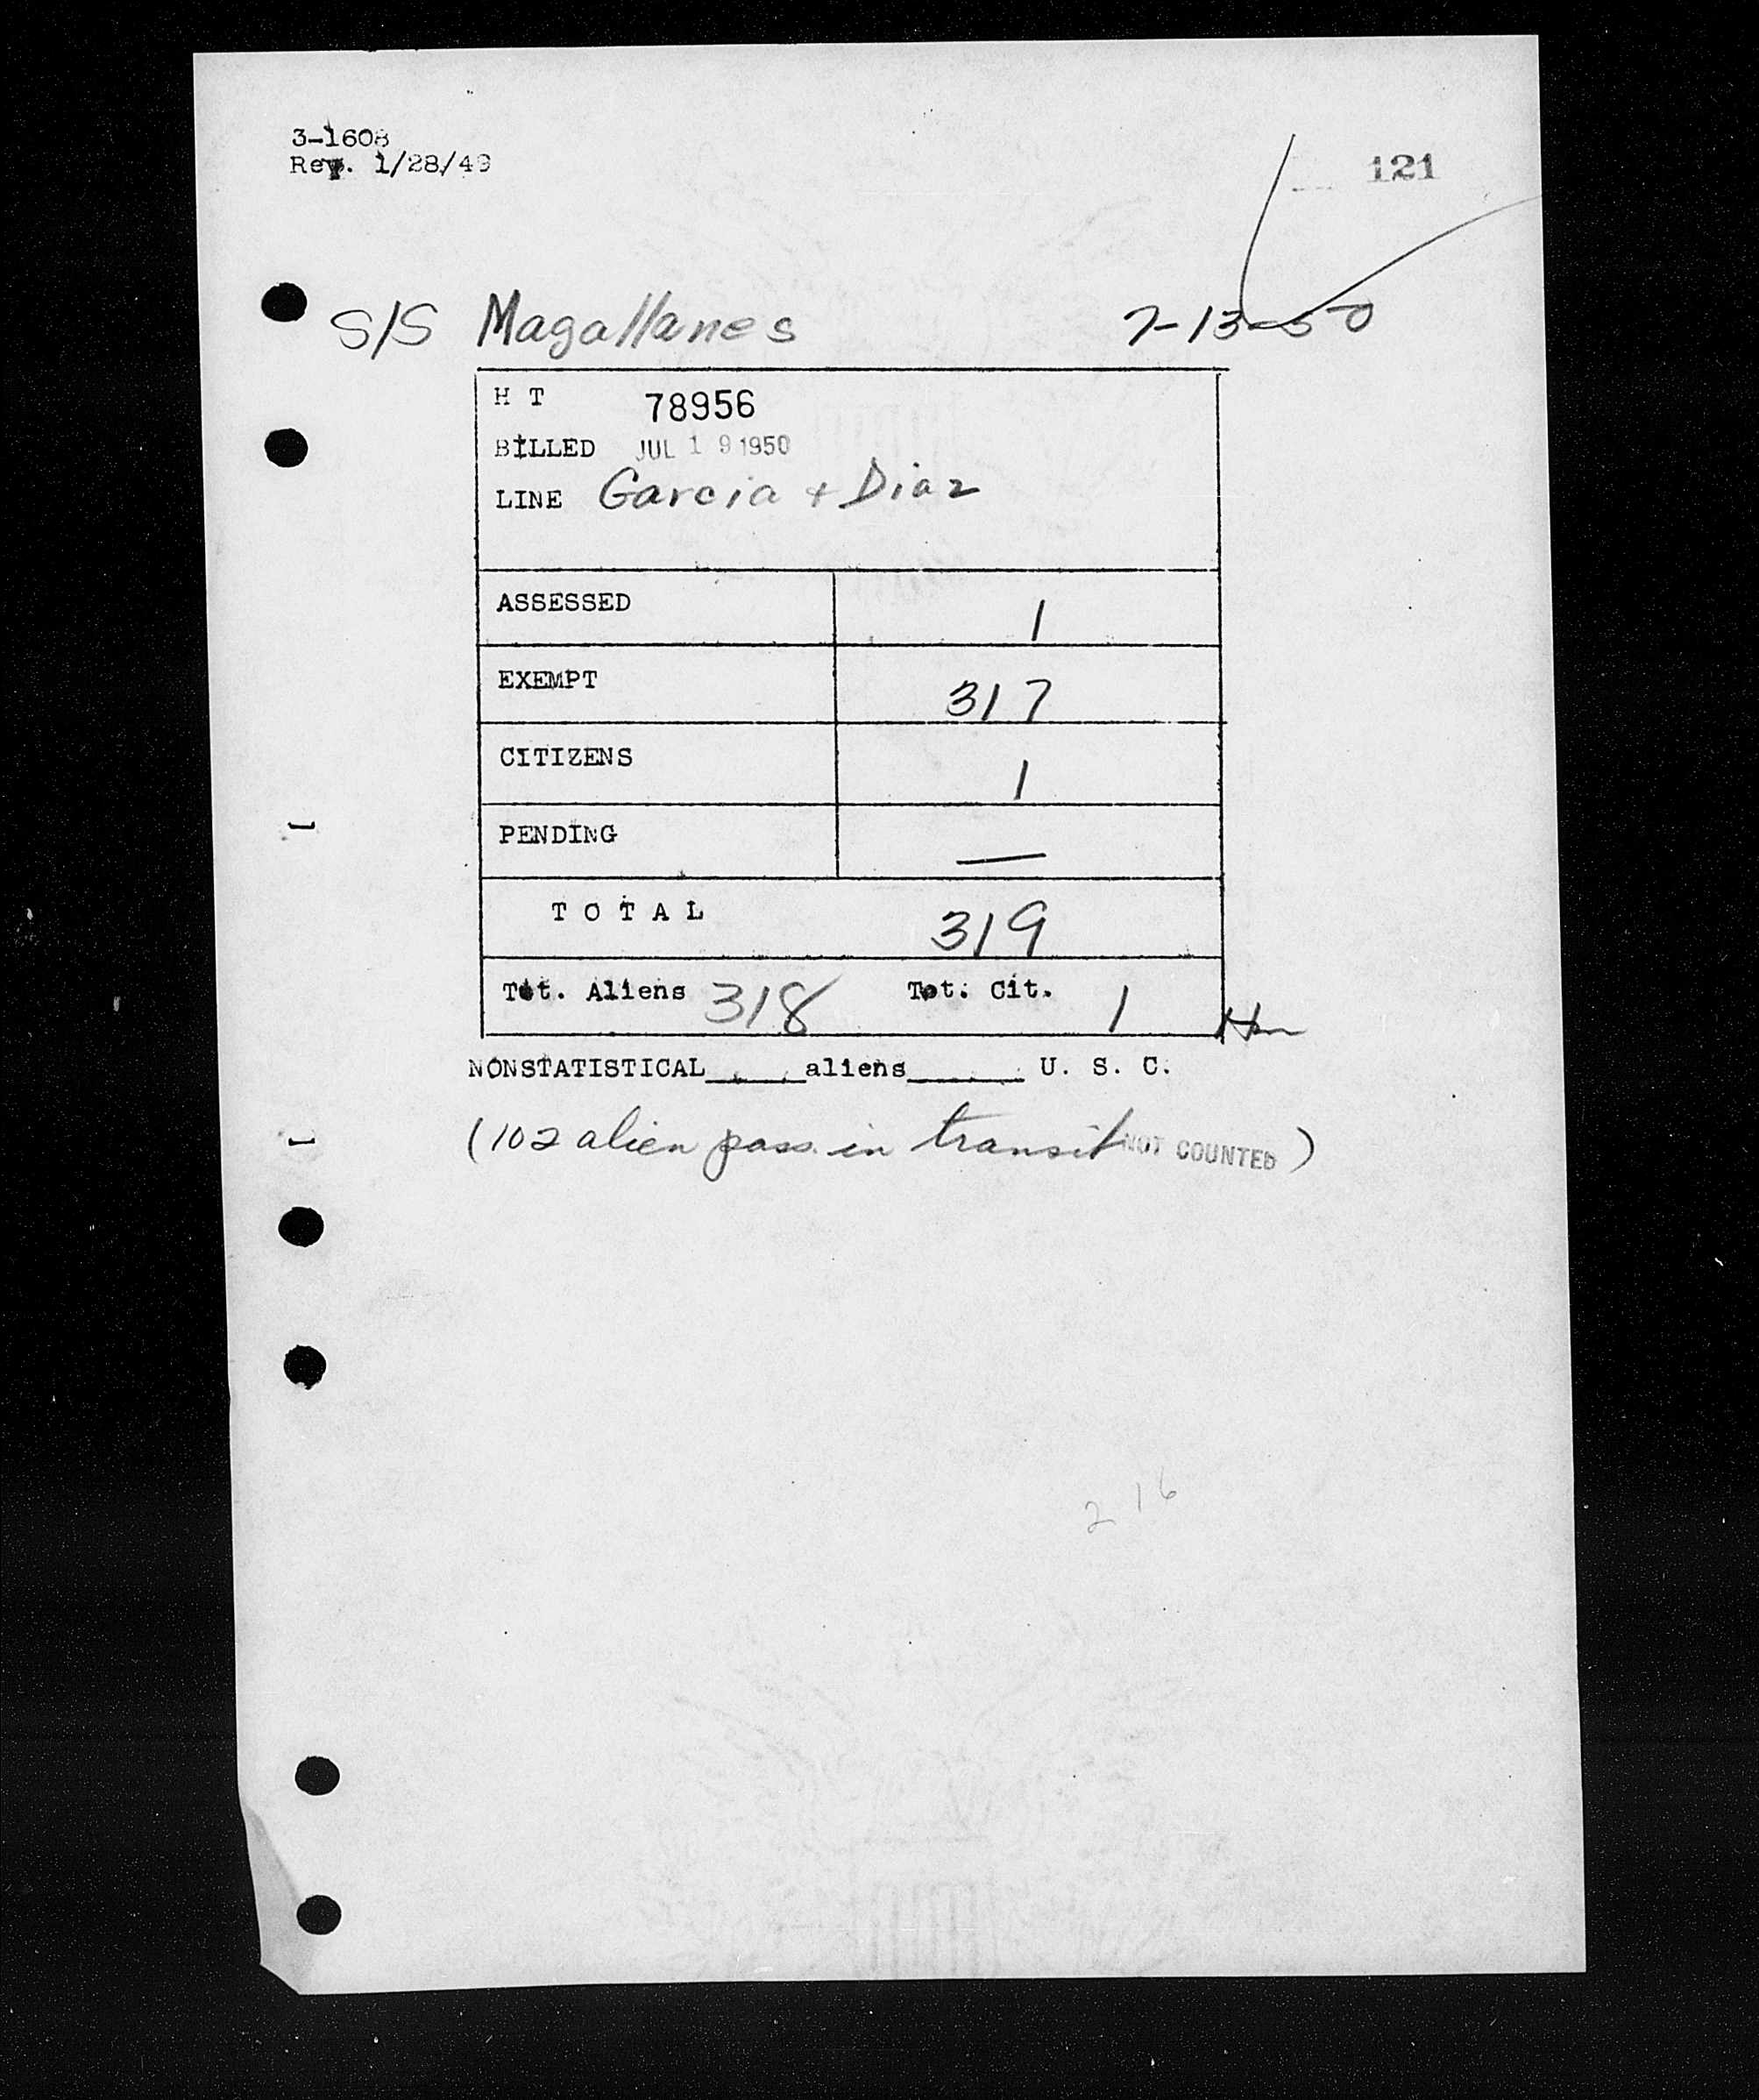 3-1608
Rev. 1/28/49
121
S/S Magallanes 7-13-50
H T 78956
BILLED JUL 19 1950
LINE Garcia + Diaz
ASSESSED 1
EXEMPT 317
CITIZENS 1
PENDING —
T O T A L 319
Tot. Aliens 318 Tot. Cit. 1
NONSTATISTICAL_____aliens______ U. S. C.
(102 alien pass. in transit NOT COUNTED)
2 16